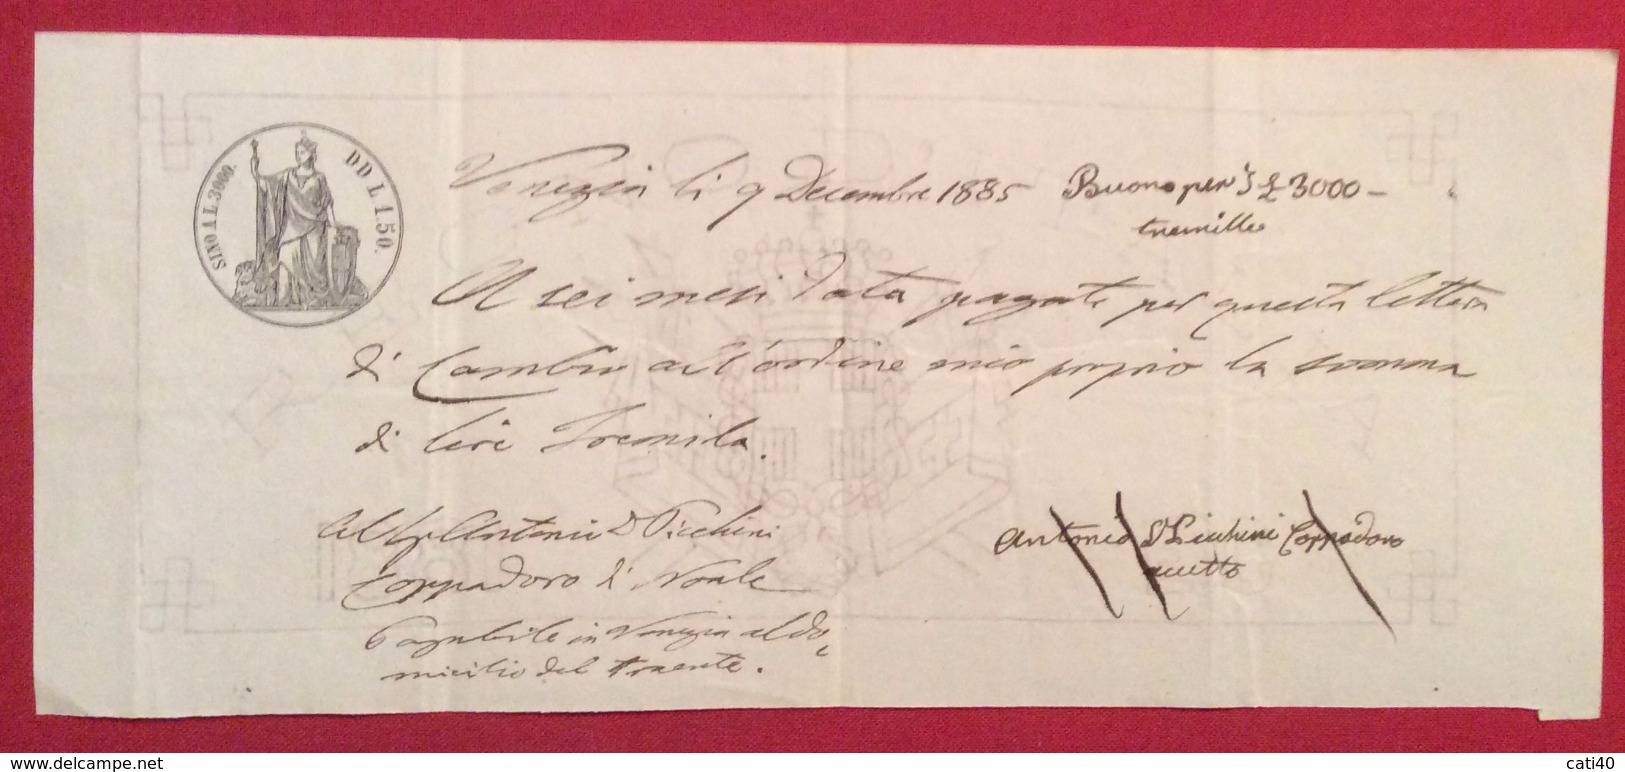 SINO A L.3000. DD L.1.50.
Venezia li 9 Decembre 1885 Buono per £ 3000 –
tremille
A sei mesi data pagate per questa lettera
di Cambio all'ordine mio proprio la somma
di Lire Tremila.
Al Sig Antonio D Picchini
Coppadoro di Noale
Pagabile in Venezia al do
micilio del traente.
Antonio D Picchini Coppadoro
accetto
www.delcampe.net
cati40